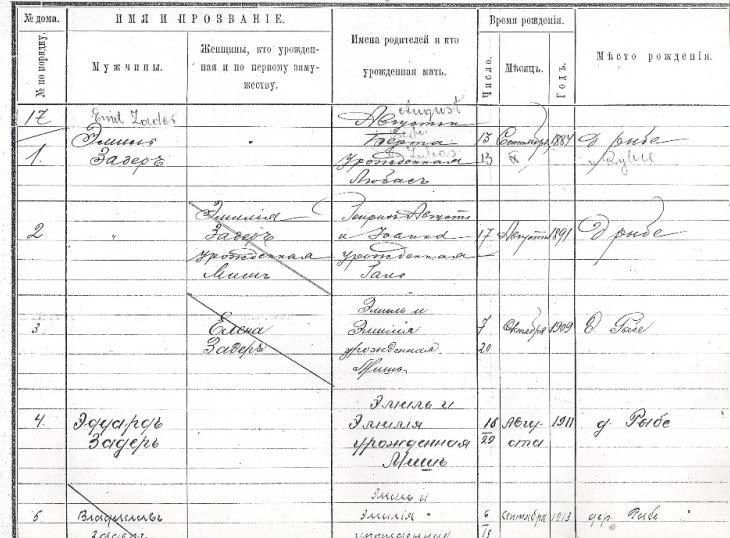 № дома.
№ по порядку.
ИМЯ И ПРОЗВАНІЕ.
Мужчины.
Женщины, кто урожден-
ная и по первому заму-
жеству.
Имена родителей и кто
урожденная мать.
Время рожденія.
Число.
Мѣсяцъ.
Годъ.
Мѣсто рожденія.
17
1.
Emil Zader
Эмиль
Задеръ
August
Августъ
Берта
урожденная
Любасъ
13
13
Сентября
IX
1887
д рыбе
w Rybie
2
"
Эмилія
Задеръ
урожденная
Мишъ
Августъ
и Іоанна
урожденная
17
Августа
1891
д рыбе
3
Елена
Задеръ
Эмиль и
Эмилія
урожденная
Мишъ
7
20
Октября
1909
д Рыбе
4.
Эдуардъ
Задеръ
Эмиль и
Эмилія
урожденная
Мишъ
16
29
Авгу-
ста
1911
д. Рыбе
5
Владиславъ
Задеръ
Эмиль и
Эмилія
урожденная
6
Сентября
1913
дер. Рыбе